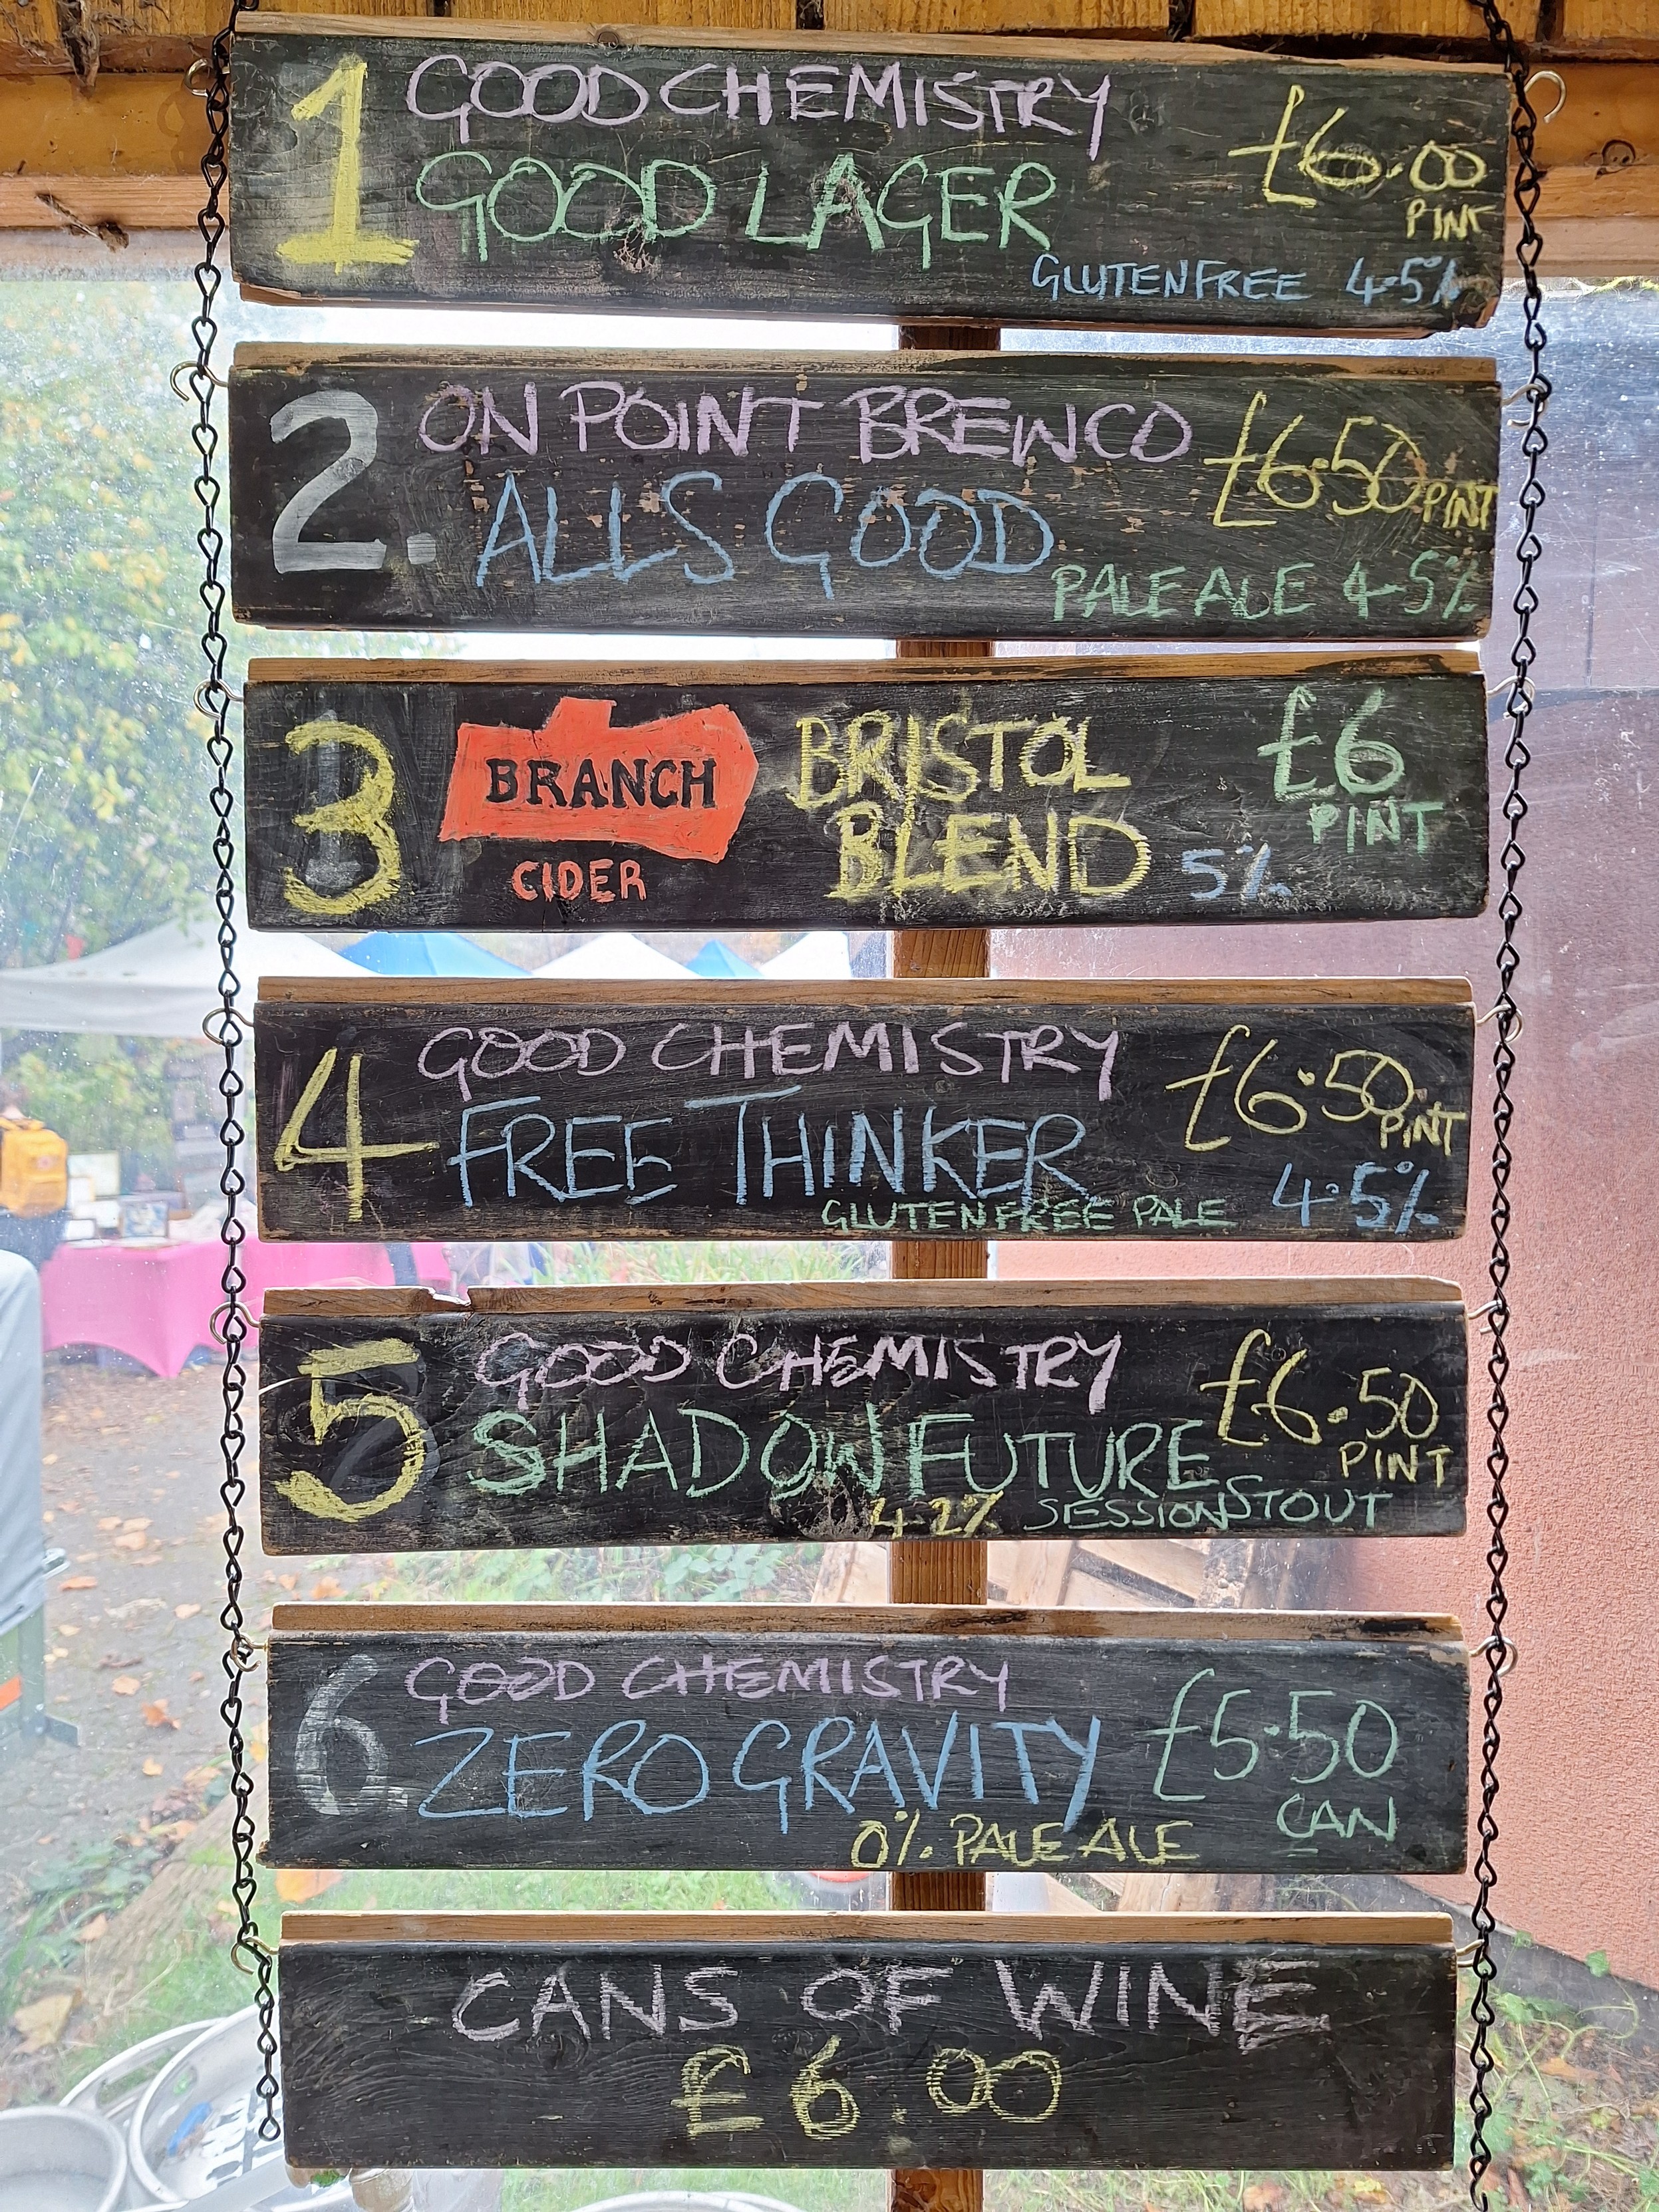 1
GOOD CHEMISTRY
GOOD LAGER
£6.00
PINT
GLUTEN FREE 4.5%
2.
ON POINT BREWCO
ALLS GOOD
£6.50 PINT
PALE ALE 4.5%
3
BRANCH
CIDER
BRISTOL
BLEND
5%
£6
PINT
4
GOOD CHEMISTRY
FREE THINKER
£6.50
PINT
GLUTEN FREE PALE 4.5%
5
GOOD CHEMISTRY
SHADOW FUTURE
£6.50
PINT
4.2% SESSION STOUT
6
GOOD CHEMISTRY
ZERO GRAVITY
£5.50
CAN
0%. PALE ALE
CANS OF WINE
£6.00